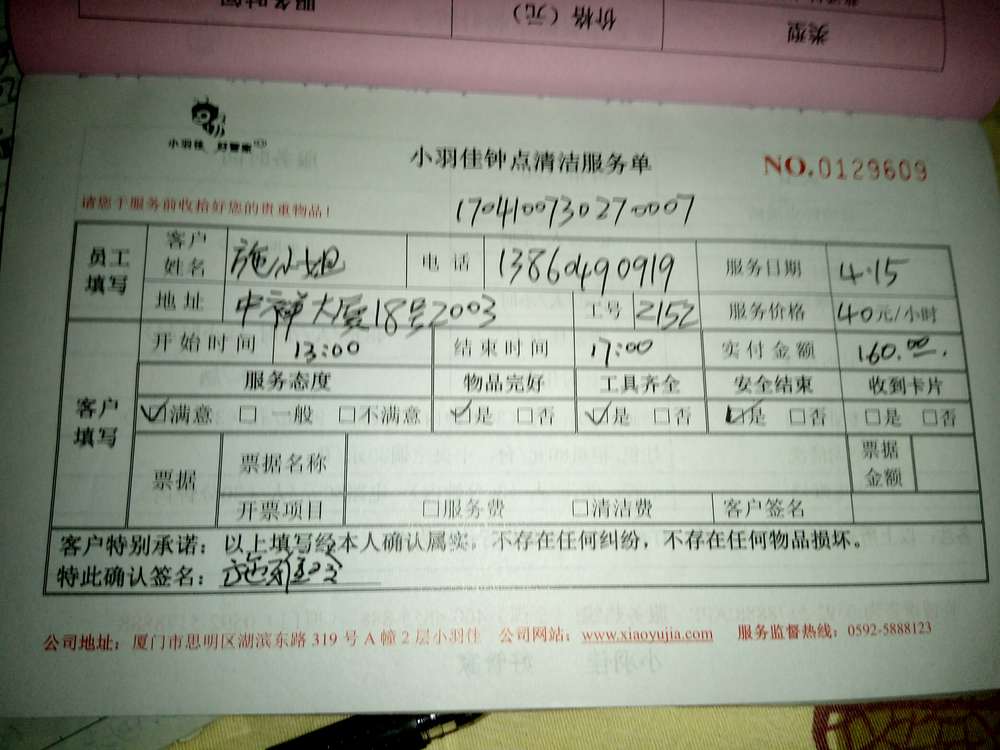 服务时间 价格（元） 类型
小羽佳 好管家
小羽佳钟点清洁服务单
NO.0129609
请您于服务前收拾好您的贵重物品！
1704100730270007
员工填写 客户姓名 施小姐 电话 13860490919 服务日期 4.15
地址 中禅大厦18号2003 工号 2152 服务价格 40元/小时
开始时间 13:00 结束时间 17:00 实付金额 160.00
客户填写 服务态度 物品完好 工具齐全 安全结束 收到卡片
☑满意 □一般 □不满意 ☑是 □否 ☑是 □否 ☑是 □否 □是 □否
票据 票据名称 票据金额
开票项目 □服务费 □清洁费 客户签名
客户特别承诺：以上填写经本人确认属实，不存在任何纠纷，不存在任何物品损坏。
特此确认签名：
公司地址：厦门市思明区湖滨东路 319 号 A 幢 2 层小羽佳 公司网站：www.xiaoyujia.com 服务监督热线：0592-5888123